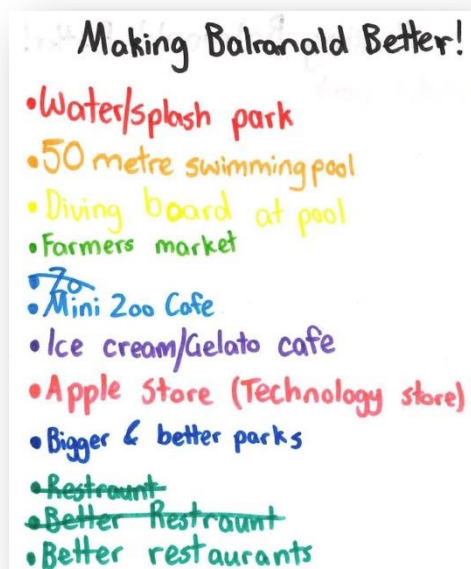 Making Balranald Better!
•Water/splash park
•50 metre swimming pool
•Diving board at pool
•Farmers market
•Zo
•Mini Zoo Cafe
•Ice cream/Gelato cafe
•Apple Store (Technology store)
•Bigger & better parks
•Restraunt
•Better Restraunt
•Better restaurants